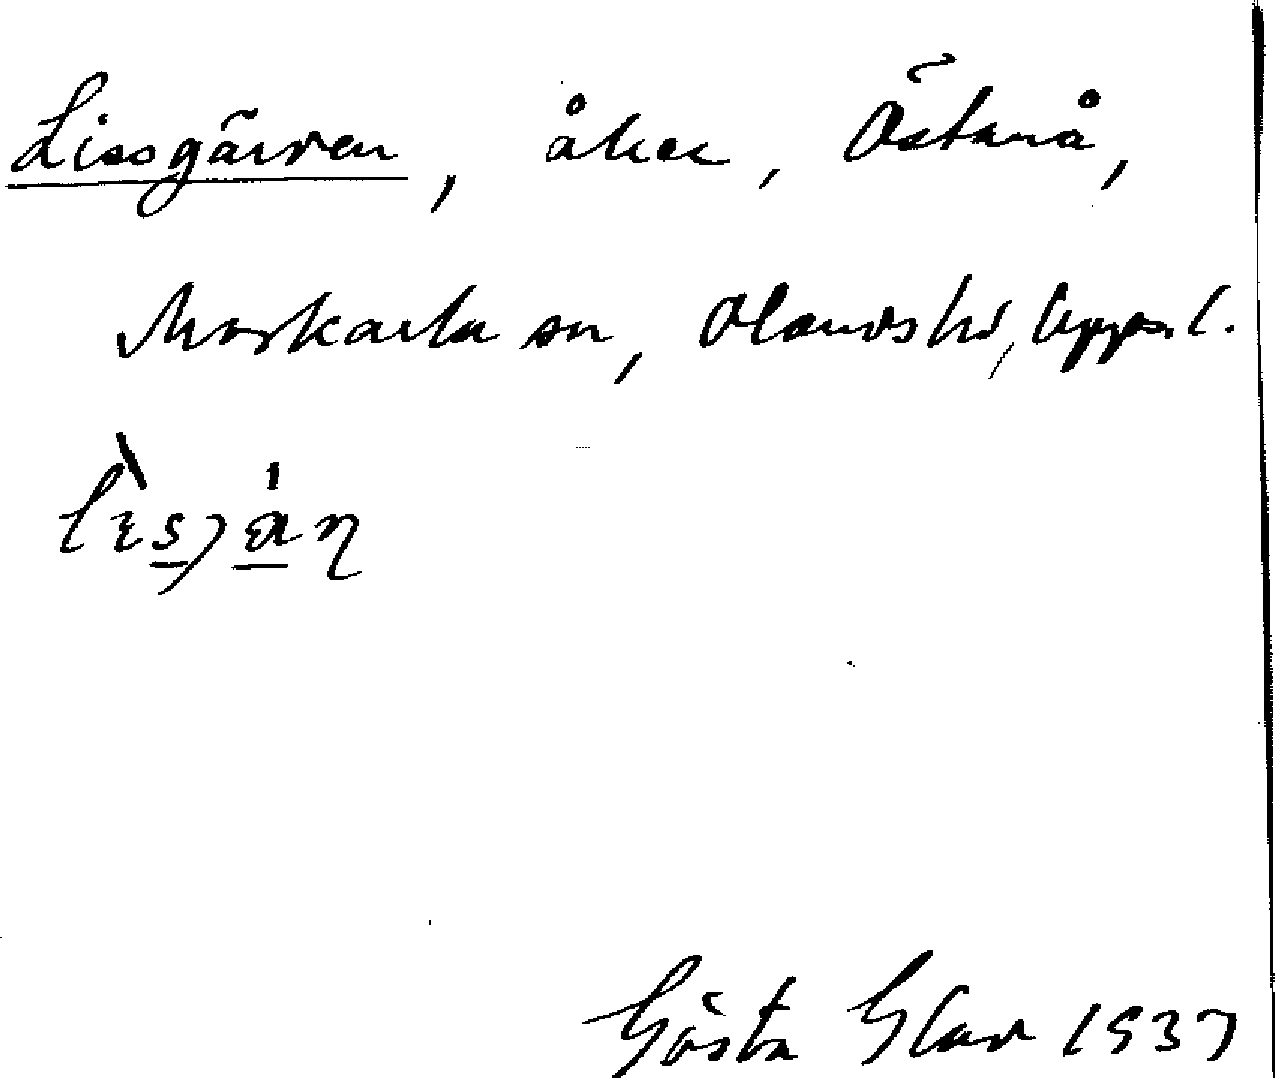 Lissgärden, åker, Östanå,
Morkarla sn, Olands hd, Uppsl.
Gösta Glad 1937